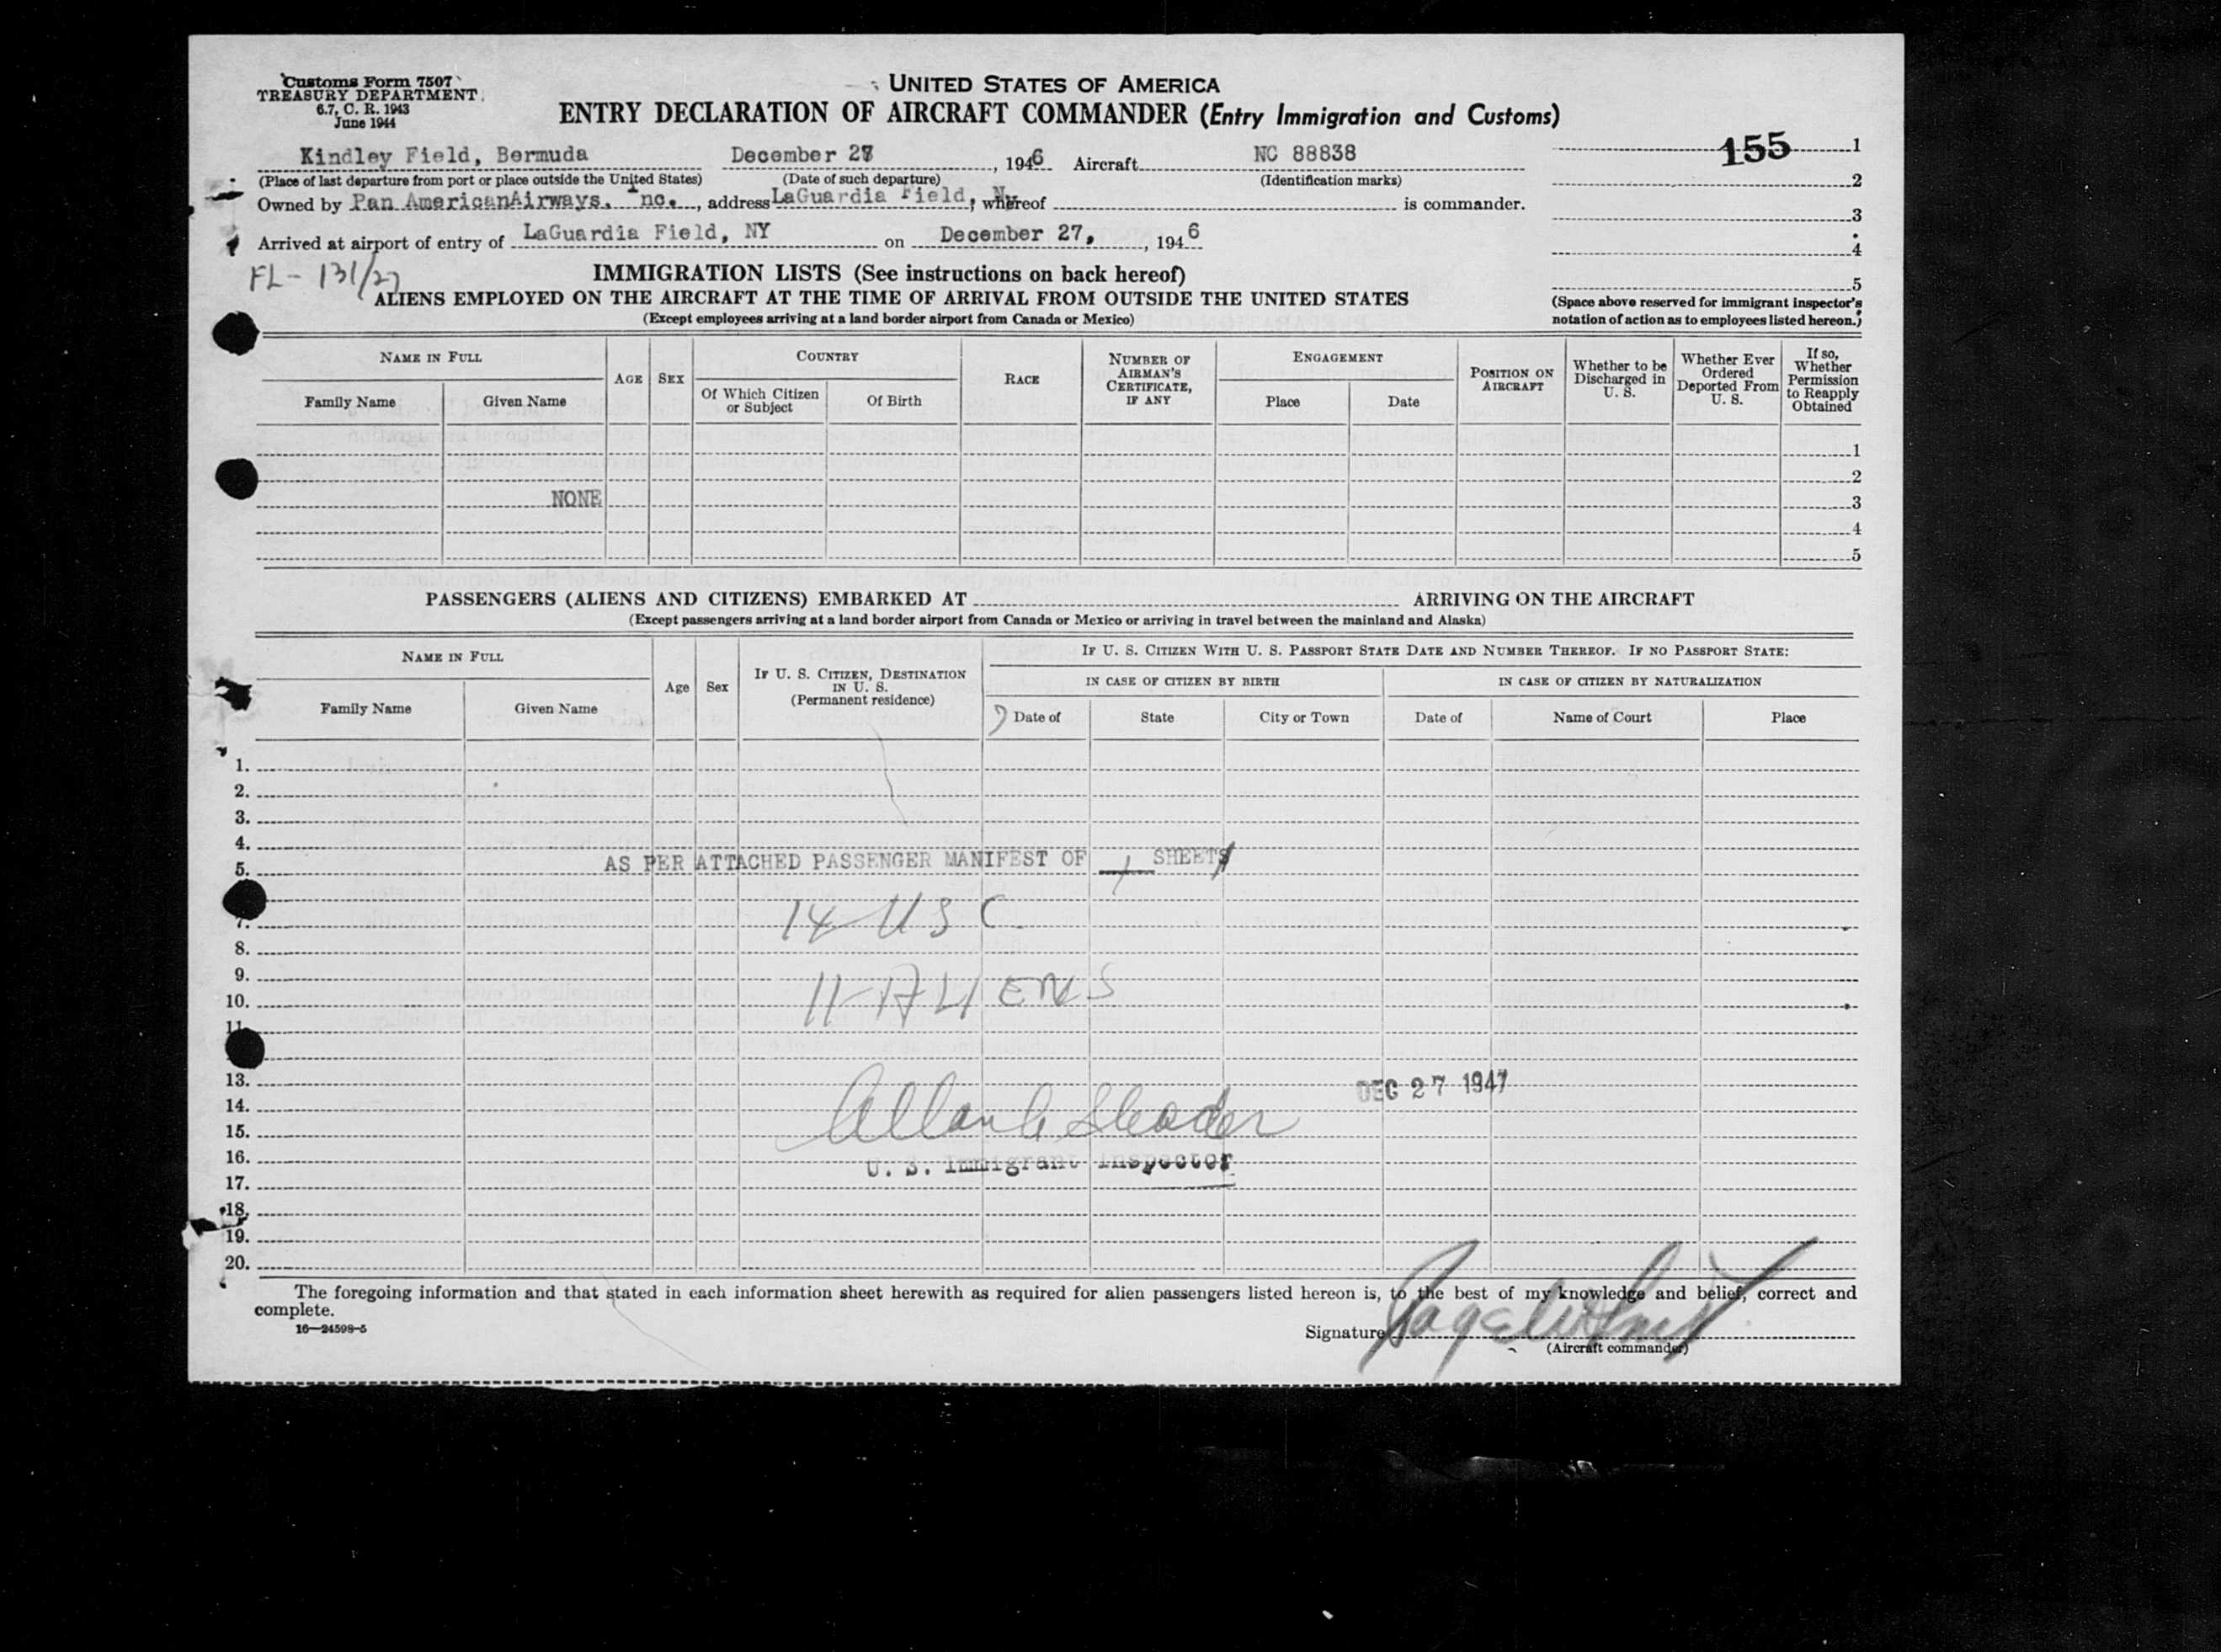 Customs Form 7507
TREASURY DEPARTMENT
6.7, C. R. 1943
June 1944
UNITED STATES OF AMERICA
ENTRY DECLARATION OF AIRCRAFT COMMANDER (Entry Immigration and Customs)
155 1
2
3
4
5
(Space above reserved for immigrant inspector's
notation of action as to employees listed hereon.)
Kindley Field, Bermuda December 27, 1946 Aircraft NC 88838
(Place of last departure from port or place outside the United States) (Date of such departure) (Identification marks)
Owned by Pan AmericanAirways, Inc., address LaGuardia Field, NY whereof is commander.
Arrived at airport of entry of LaGuardia Field, NY on December 27, , 1946
FL - 131/27
IMMIGRATION LISTS (See instructions on back hereof)
ALIENS EMPLOYED ON THE AIRCRAFT AT THE TIME OF ARRIVAL FROM OUTSIDE THE UNITED STATES
(Except employees arriving at a land border airport from Canada or Mexico)
NAME IN FULL
Family Name
Given Name
AGE
SEX
COUNTRY
Of Which Citizen or Subject
Of Birth
RACE
NUMBER OF AIRMAN'S CERTIFICATE, IF ANY
ENGAGEMENT
Place
Date
POSITION ON AIRCRAFT
Whether to be Discharged in U. S.
Whether Ever Ordered Deported From U. S.
If so, Whether Permission to Reapply Obtained
1
2
NONE 3
4
5
PASSENGERS (ALIENS AND CITIZENS) EMBARKED AT ARRIVING ON THE AIRCRAFT
(Except passengers arriving at a land border airport from Canada or Mexico or arriving in travel between the mainland and Alaska)
NAME IN FULL
Family Name
Given Name
Age
Sex
IF U. S. CITIZEN, DESTINATION IN U. S.
(Permanent residence)
IF U. S. CITIZEN WITH U. S. PASSPORT STATE DATE AND NUMBER THEREOF. IF NO PASSPORT STATE:
IN CASE OF CITIZEN BY BIRTH
IN CASE OF CITIZEN BY NATURALIZATION
Date of
State
City or Town
Date of
Name of Court
Place
1.
2.
3.
4.
5. AS PER ATTACHED PASSENGER MANIFEST OF 1 SHEETS
7. 14 USC
8.
9.
10. 11-ALIENS
11.
13. DEC 27 1947
14.
15.
16. U. S. Immigrant Inspector
17.
18.
19.
20.
The foregoing information and that stated in each information sheet herewith as required for alien passengers listed hereon is, to the best of my knowledge and belief, correct and
complete.
16—24598-5
Signature
(Aircraft commander)